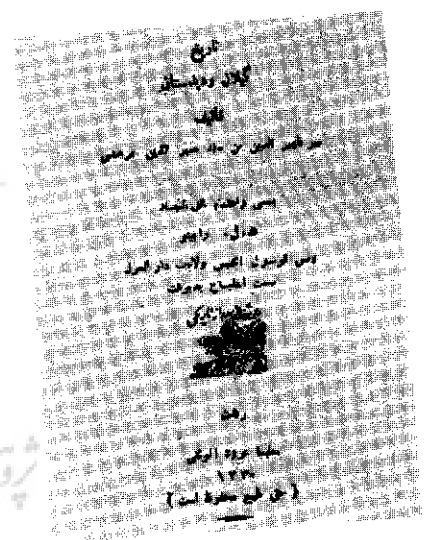 تاریخ
گیلان و دیلمستان
تألیف
میر ظهیر الدین بن سید نصیر الدین مرعشی
بسعی و
ه . ل . رابینو
ویس قونسول انگلیس ولایت دار المرز
سمت انطباع پذیرفت
رشت
مطبعهٔ عروة الوثقی
۱۳۳۰
( حق طبع محفوظ است )